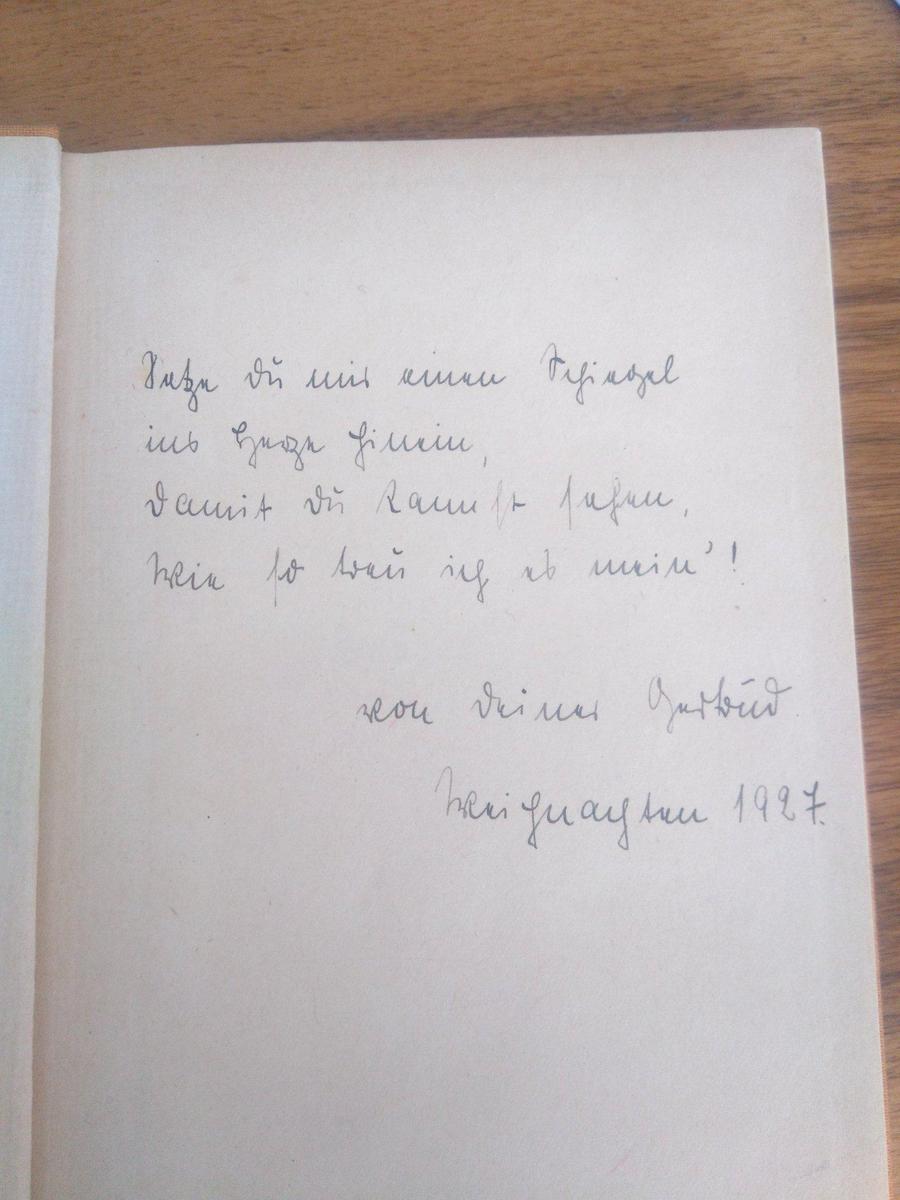 Setze du mir einen Spiegel
ins Herze hinein,
damit du kannst sehen,
Wie so treu ich es mein'!
von deiner Gertrud
Weihnachten 1927.